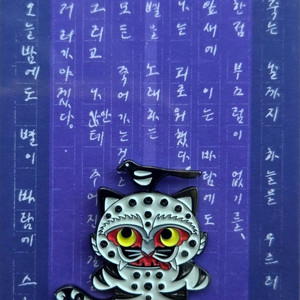 죽는 날까지 하늘을 우르러
한점 부끄럼이 없기를,
잎새에 이는 바람에도
나는 괴로워했다.
별을 노래하는
모든 죽어가는
그리고 나안테 주어
거러가야겠다.
오늘밤에도 별이 바람에 스